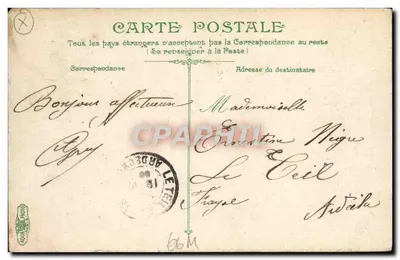 CARTE POSTALE
Tout les pays étrangers n'acceptent pas la Correspondance au recto
(Se renseigner à la Poste)
Correspondance
Adresse du destinataire
Bonjour affectueux
Mademoiselle
Ernestine Nègre
Le Teil
Frayol
Ardèche
LE TEIL
ARDECHE
CARTE-POSTALE
66M